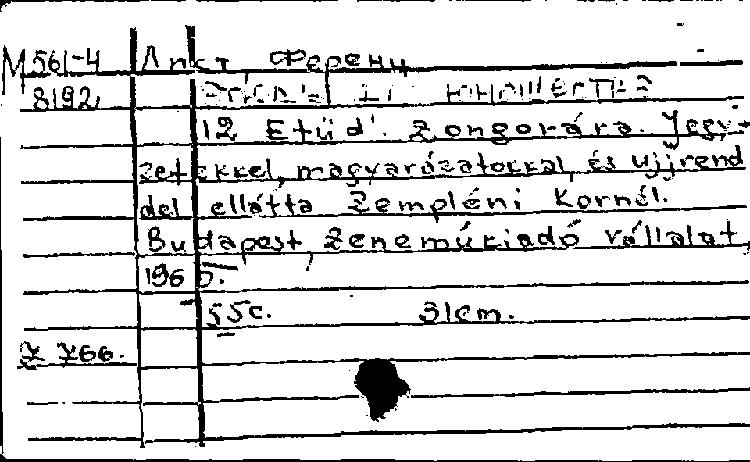 М561-4 Лист, Ференц
8192
12 Etüd'. Zongorára. Jegy-
zetekkel, magyarázatokkal, és ujjrend
del ellátta Zempléni Kornél.
Budapest, Zeneműkiadó vállalat,
1965.
55c. 31cm.
Z 766.